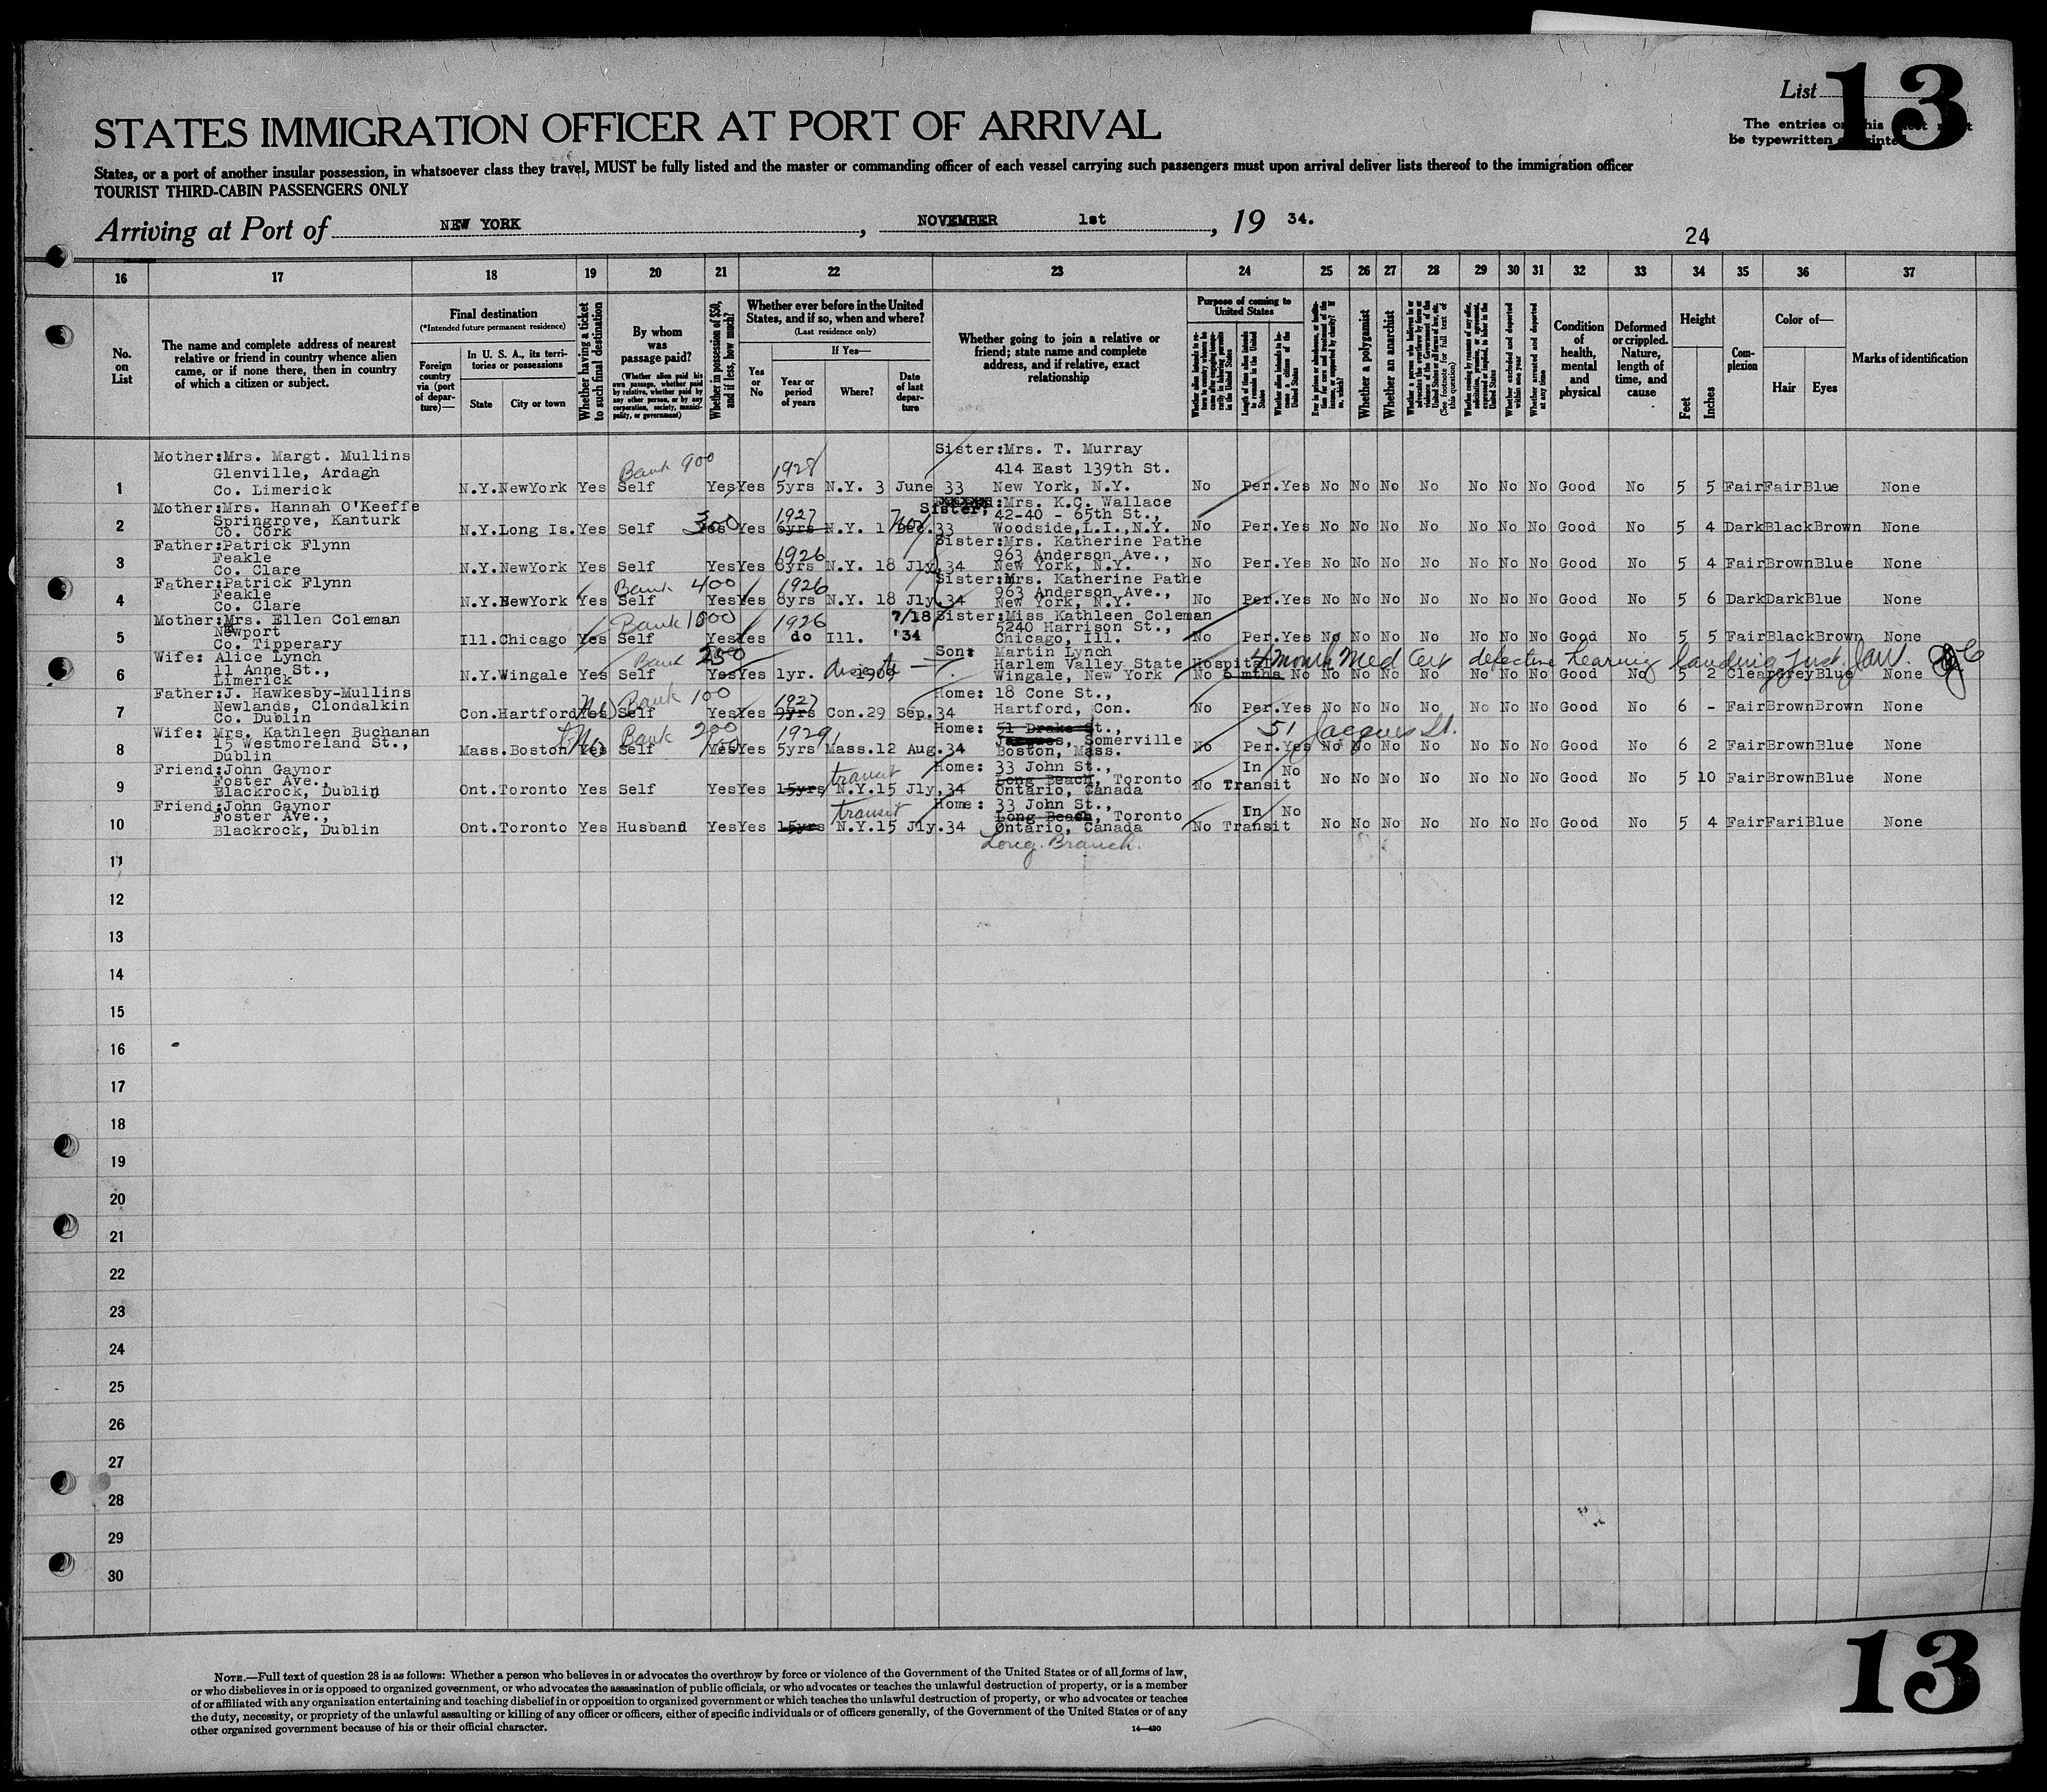 List 13
The entries on this sheet must
be typewritten or printed
STATES IMMIGRATION OFFICER AT PORT OF ARRIVAL
States, or a port of another insular possession, in whatsoever class they travel, MUST be fully listed and the master or commanding officer of each vessel carrying such passengers must upon arrival deliver lists thereof to the immigration officer
TOURIST THIRD-CABIN PASSENGERS ONLY
Arriving at Port of NEW YORK, NOVEMBER 1st, 19 34.
24
16 17 18 19 20 21 22 23 24 25 26 27 28 29 30 31 32 33 34 35 36 37
No. on List
The name and complete address of nearest relative or friend in country whence alien came, or if none there, then in country of which a citizen or subject.
Final destination
(*Intended future permanent residence)
Foreign country via (port of departure)—
In U. S. A., its territories or possessions
State
City or town
Whether having a ticket to such final destination
By whom was passage paid?
(Whether alien paid his own passage, whether paid by relative, whether paid by any other person, or by any corporation, society, municipality, or government)
Whether in possession of $50, and if less, how much?
Whether ever before in the United States, and if so, when and where?
(Last residence only)
Yes or No
If Yes—
Year or period of years
Where?
Date of last departure
Whether going to join a relative or friend; state name and complete address, and if relative, exact relationship
Purpose of coming to United States
Length of time alien intends to remain in the United States
Whether alien intends to become a citizen of the United States
Whether a polygamist
Whether an anarchist
Whether excluded and deported within one year
Whether arrested and deported at any time
Condition of health, mental and physical
Deformed or crippled. Nature, length of time, and cause
Height
Feet
Inches
Complexion
Color of—
Hair
Eyes
Marks of identification
Mother:Mrs. Margt. Mullins Sister:Mrs. T. Murray
Glenville, Ardagh Bank 900 1928 414 East 139th St.
1 Co. Limerick N.Y. NewYork Yes Self Yes Yes 5yrs N.Y. 3 June 33 New York, N.Y. No Per. Yes No No No No No No No Good No 5 5 Fair Fair Blue None
Mother:Mrs. Hannah O'Keeffe Sister: :Mrs. K.C. Wallace
Springrove, Kanturk 300 1927 42-40 - 65th St.,
2 Co. Cork N.Y. Long Is. Yes Self Yes Yes 6yrs N.Y. 1 Dec. 33 Woodside,L.I.,N.Y. No Per. Yes No No No No No No No Good No 5 4 Dark Black Brown None
Father:Patrick Flynn Sister:Mrs. Katherine Pathe
Feakle 1926 963 Anderson Ave.,
3 Co. Clare N.Y. NewYork Yes Self Yes Yes 8yrs N.Y. 18 Jly. 34 New York, N.Y. No Per. Yes No No No No No No No Good No 5 4 Fair Brown Blue None
Father:Patrick Flynn Sister:Mrs. Katherine Pathe
Feakle Bank 400 1926 963 Anderson Ave.,
4 Co. Clare N.Y. NewYork Yes Self Yes Yes 8yrs N.Y. 18 Jly. 34 New York, N.Y. No Per. Yes No No No No No No No Good No 5 6 Dark Dark Blue None
Mother:Mrs. Ellen Coleman Sister:Miss Kathleen Coleman
Newport Bank 1500 1926 7/18 5240 Harrison St.,
5 Co. Tipperary Ill. Chicago Yes Self Yes Yes do Ill. '34 Chicago, Ill. No Per. Yes No No No No No No No Good No 5 5 Fair Black Brown None
Wife: Alice Lynch Son: Martin Lynch
11 Anne St., Bank 250 Harlem Valley State Hospital 4 months Med Cert defective hearing
6 Limerick N.Y. Wingale Yes Self Yes Yes 1yr. 1909 Wingale, New York No 6 mths No No No No No No No No Good No 5 2 Clear Grey Blue None
Father:J. Hawkesby-Mullins Home: 18 Cone St.,
Newlands, Clondalkin No Bank 100 1927 Hartford, Con.
7 Co. Dublin Con. Hartford Yes Self Yes Yes 9yrs Con. 29 Sep. 34 No Per. Yes No No No No No No No Good No 6 - Fair Brown Brown None
Wife: Mrs. Kathleen Buchanan Home: 51 Drake St., 51 Jacques St.
15 Westmoreland St., No Bank 200 1929 Jacques, Somerville
8 Dublin Mass. Boston Yes Self Yes Yes 5yrs Mass. 12 Aug. 34 Boston, Mass. No Per. Yes No No No No No No No Good No 6 2 Fair Brown Blue None
Friend:John Gaynor Home: 33 John St., In No
Foster Ave., transit Long Beach, Toronto
9 Blackrock, Dublin Ont. Toronto Yes Self Yes Yes 15yrs N.Y. 15 Jly. 34 Ontario, Canada No Transit No No No No No No No Good No 5 10 Fair Brown Blue None
Friend:John Gaynor Home: 33 John St., In No
Foster Ave., transit Long Beach, Toronto
10 Blackrock, Dublin Ont. Toronto Yes Husband Yes Yes 15yrs N.Y. 15 Jly. 34 Ontario, Canada No Transit No No No No No No No Good No 5 4 Fair Fari Blue None
Long Branch.
11
12
13
14
15
16
17
18
19
20
21
22
23
24
25
26
27
28
29
30
NOTE.—Full text of question 28 is as follows: Whether a person who believes in or advocates the overthrow by force or violence of the Government of the United States or of all forms of law,
or who disbelieves in or is opposed to organized government, or who advocates the assassination of public officials, or who advocates or teaches the unlawful destruction of property, or is a member
of or affiliated with any organization entertaining and teaching disbelief in or opposition to organized government or which teaches the unlawful destruction of property, or who advocates or teaches
the duty, necessity, or propriety of the unlawful assaulting or killing of any officer or officers, either of specific individuals or of officers generally, of the Government of the United States or of any
other organized government because of his or their official character.
14—430
13